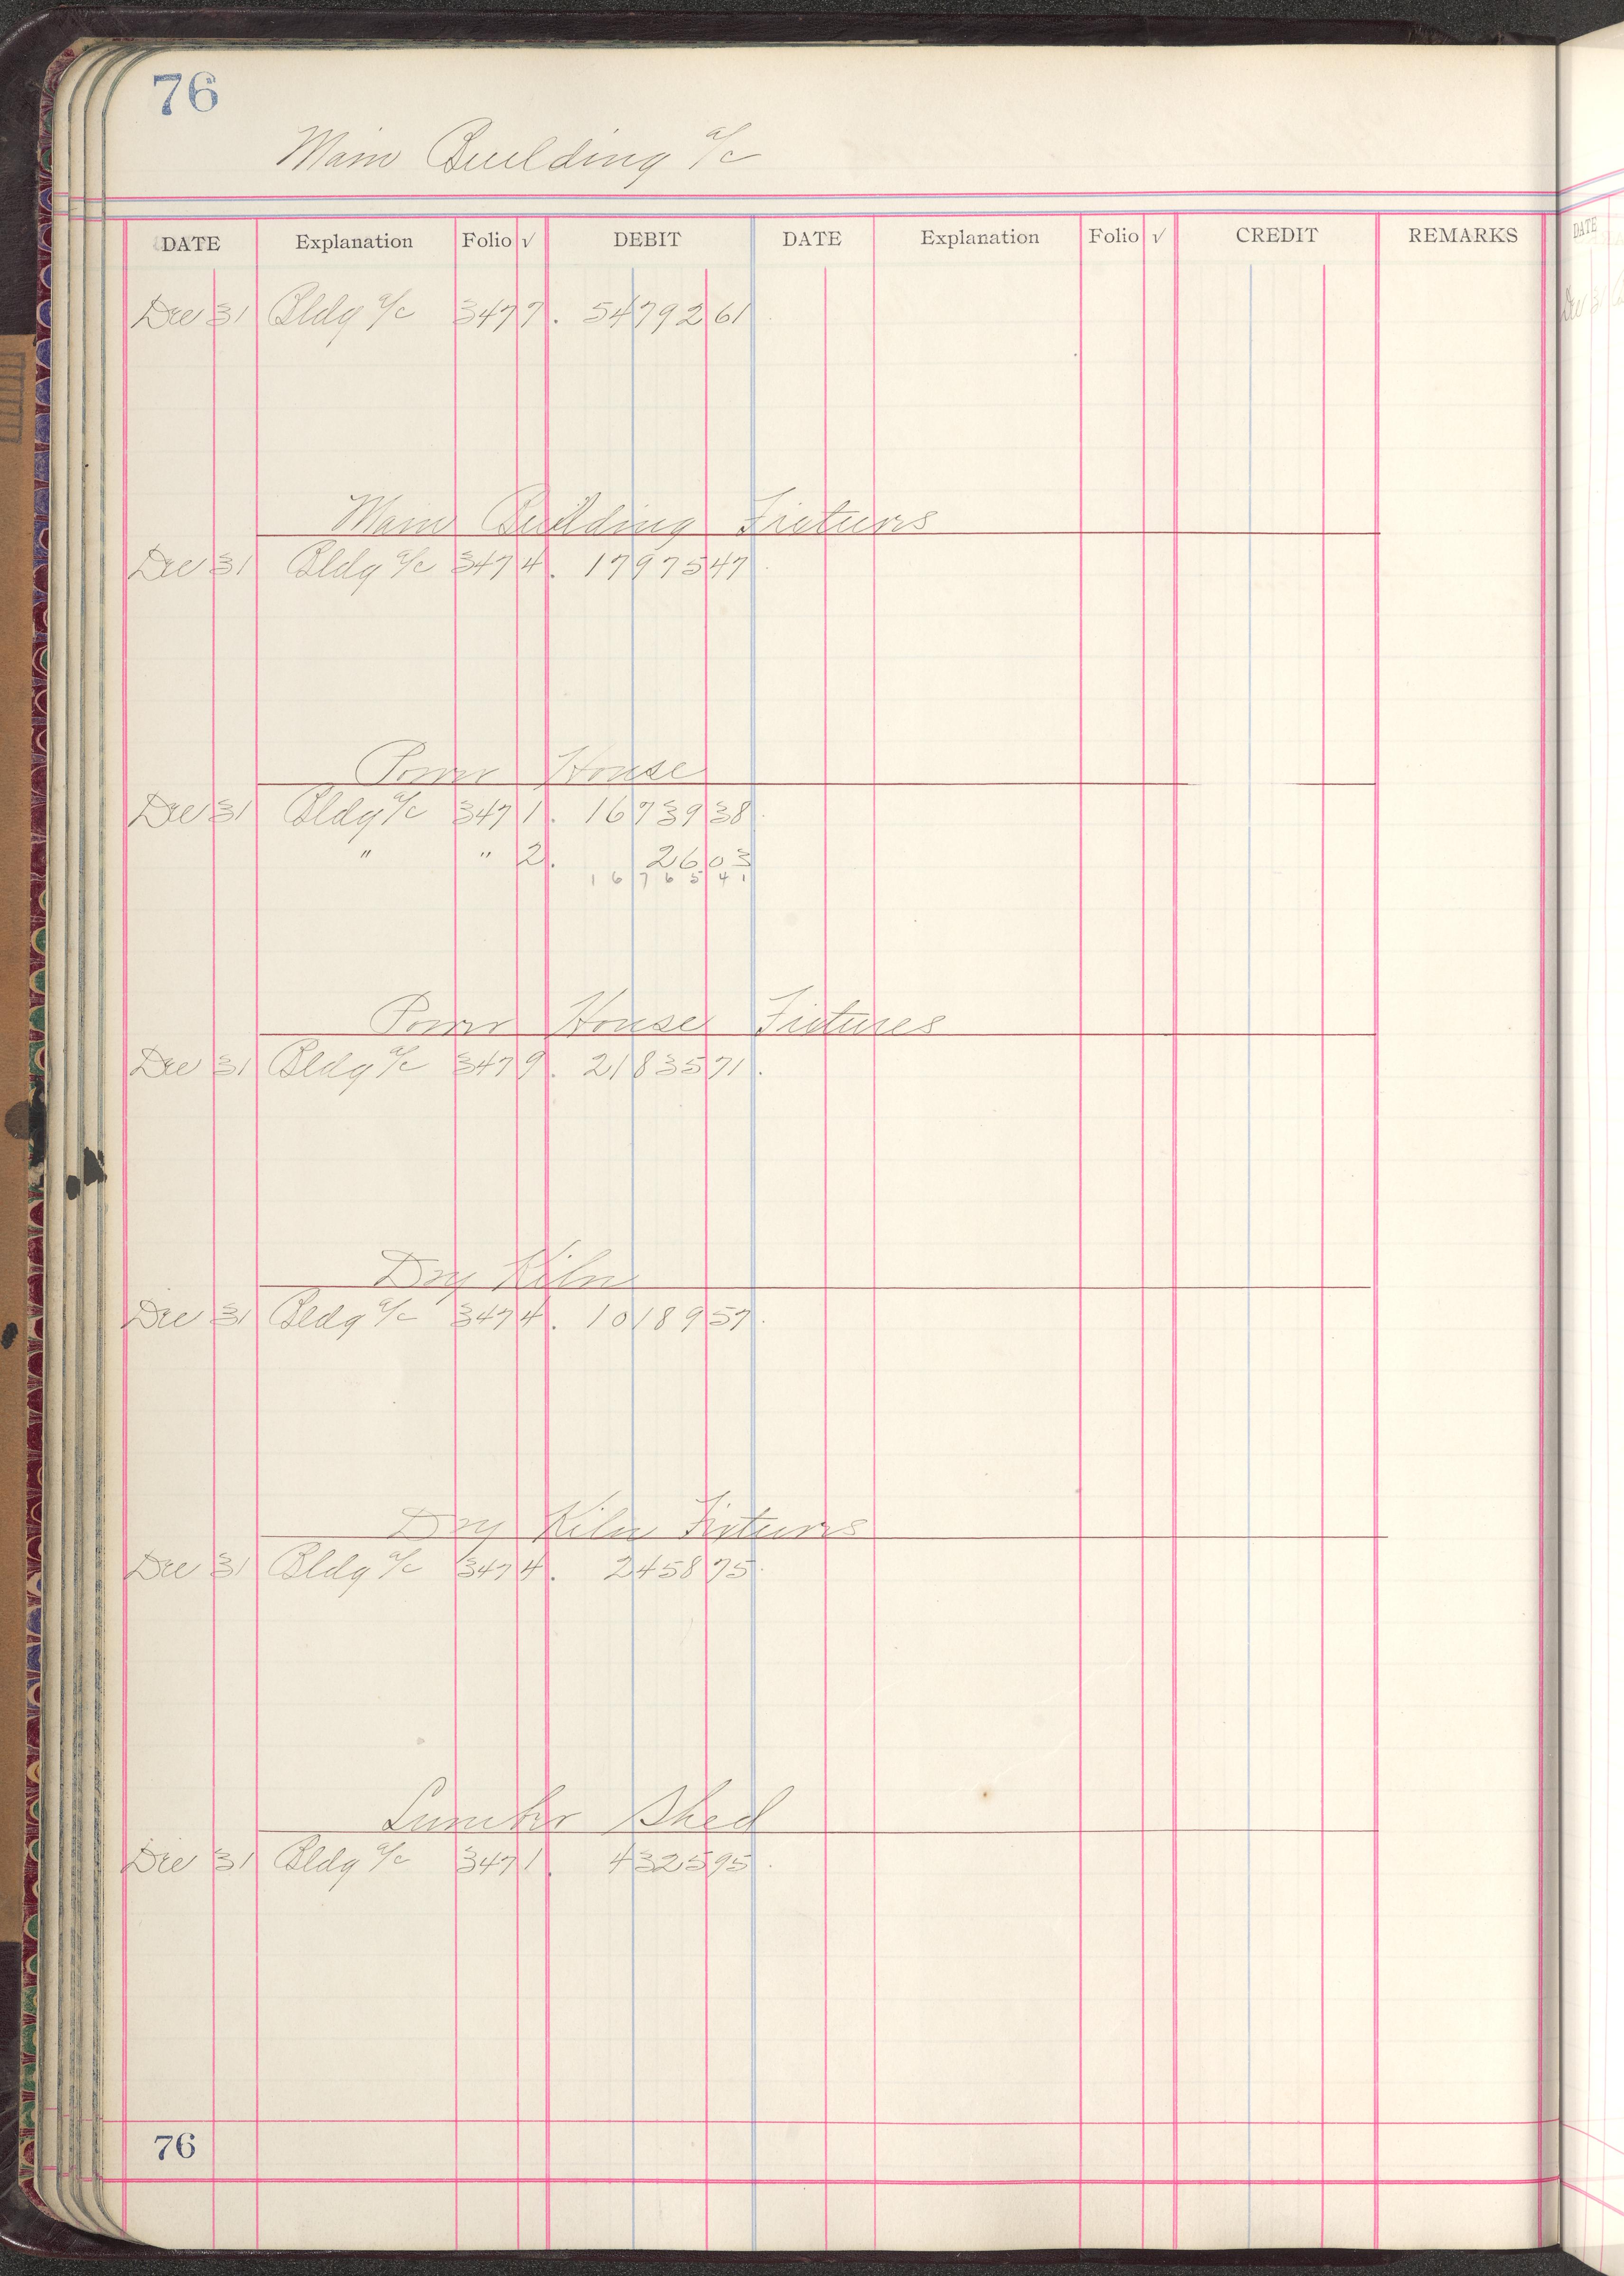 76
Main Building a/c
DATE Explanation Folio √ DEBIT DATE Explanation Folio √ CREDIT REMARKS
Dec 31 Bldg a/c 347 7. 54792 61
Main Building Fixtures
Dec 31 Bldg a/c 347 4. 17975 47
Power House
Dec 31 Bldg a/c 347 1. 16739 38
" " 2. 26 03
16765 41
Power House Fixtures
Dec 31 Bldg a/c 347 9. 21835 71
Dry Kiln
Dec 31 Bldg a/c 347 4. 10189 57
Dry Kiln Fixtures
Dec 31 Bldg a/c 347 4. 2458 75
Lumber Shed
Dec 31 Bldg a/c 347 1. 4325 95
76
DATE
Dec 31